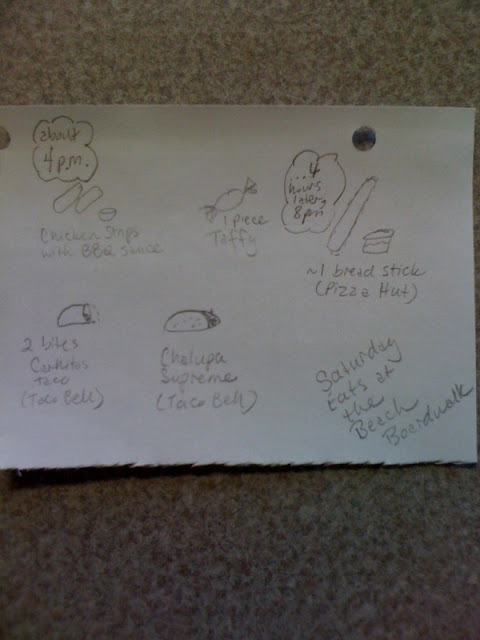 about
4 p.m.
Chicken Strips
with BBQ sauce
1 piece
Taffy
...4
hours
later,
8pm
~1 bread stick
(Pizza Hut)
2 bites
Carnitas
Taco
(Taco Bell)
Chalupa
Supreme
(Taco Bell)
Saturday
Eats at
the
Beach
Boardwalk